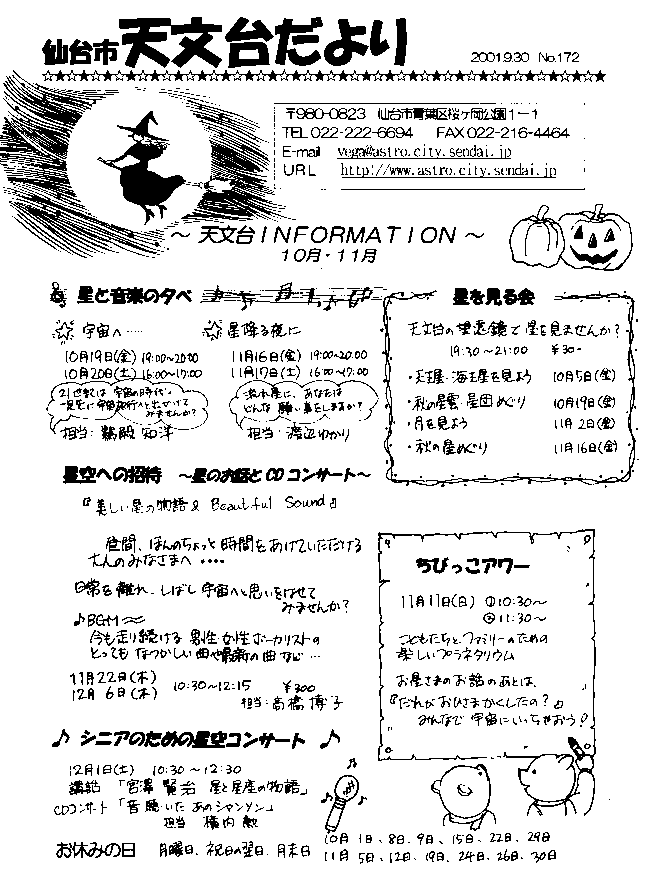 仙台市 天文台だより
2001.9.30 No.172
〒980-0823 仙台市青葉区桜ヶ岡公園1-1
TEL 022-222-6694 FAX 022-216-4464
E-mail vega@astro.city.sendai.jp
URL http://www.astro.city.sendai.jp
～ 天文台INFORMATION ～
10月・11月
星と音楽の夕べ
宇宙へ……
10月19日(金) 19:00~20:00
10月20日(土) 16:00~17:00
21世紀は宇宙の時代。
一足先に宇宙旅行へと出かけて
みませんか?
担当: 鵜殿 知洋
星降る夜に
11月16日(金) 19:00~20:00
11月17日(土) 16:00~17:00
流れ星に、あなたは
どんな願い事をしますか?
担当: 渡辺ゆかり
星を見る会
天文台の望遠鏡で星を見ませんか?
19:30~21:00 ¥30-
・天王星・海王星を見よう 10月5日(金)
・秋の星雲・星団めぐり 10月19日(金)
・月を見よう 11月2日(金)
・秋の星めぐり 11月16日(金)
星空への招待 ～星のお話とCDコンサート～
『美しい星の物語& Beautiful Sound』
昼間、ほんのちょっと時間をあけていただける
大人のみなさまへ・・・・
日常を離れ、しばし宇宙へと思いをはせて
みませんか?
♪BGM
今も走り続ける男性・女性ボーカリストの
とってもなつかしい曲や最新の曲など…
11月22日(木)
12月6日(木) 10:30~12:15 ¥300
担当: 高橋 博子
ちびっこアワー
11月11日(日) ①10:30~
②11:30~
こどもたちとファミリーのための
楽しいプラネタリウム
お星さまのお話のあとは、
『だれがおひさまかくしたの?』
みんなで宇宙にいっちゃおう!
♪ シニアのための星空コンサート ♪
12月1日(土) 10:30~12:30
講話 「宮澤賢治 星と星座の物語」
CDコンサート「昔聴いた あのシャンソン」
担当 横内 勲
お休みの日 月曜日、祝日の翌日、月末日
10月 1日、8日、9日、15日、22日、29日
11月 5日、12日、19日、24日、26日、30日